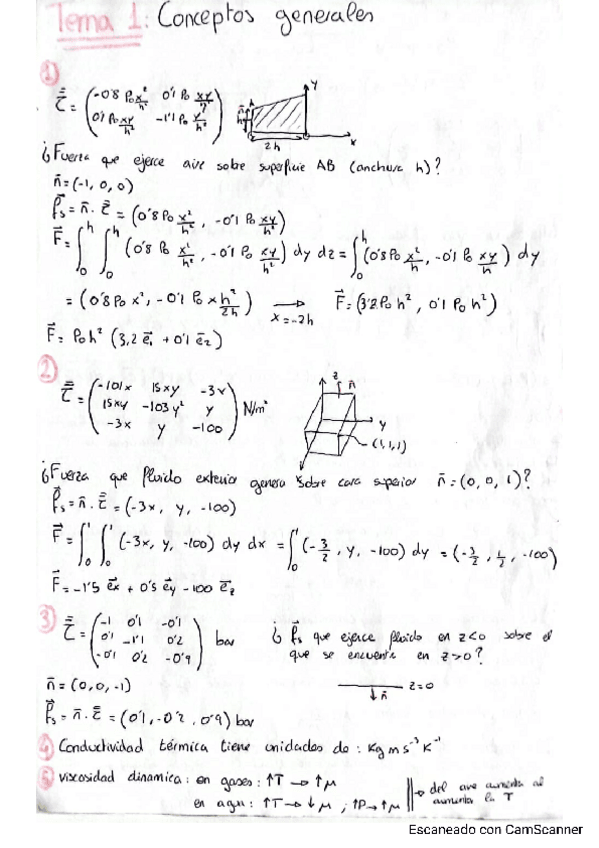 Tema 1: Conceptos generales
1)
τ̿ = (-0'8 P₀ x²/h²  0'1 P₀ xy/h²
0'1 P₀ xy/h²  -1'1 P₀ y²/h²)
y
h
2h
x
¿Fuerza que ejerce aire sobre superficie AB (anchura h)?
n̄ = (-1, 0, 0)
f⃗s = n̄ · τ̿ = (0'8 P₀ x²/h², -0'1 P₀ xy/h²)
F⃗ = ∫₀ʰ ∫₀ʰ (0'8 P₀ x²/h², -0'1 P₀ xy/h²) dy dz = ∫₀ʰ (0'8 P₀ x²/h, -0'1 P₀ xy/h) dy
= (0'8 P₀ x², -0'1 P₀ x h²/2h) → x=-2h F⃗ = (3'2 P₀ h², 0'1 P₀ h²)
F⃗ = P₀h² (3,2 e̅₁ + 0'1 e̅₂)
2)
τ̿ = (-101x  15xy  -3x
15xy  -103y²  y
-3x  y  -100) N/m²
z
n̄
y
(1,1,1)
x
¿Fuerza que fluido exterior genera sobre cara superior n̄ = (0, 0, 1)?
f⃗s = n̄ · τ̿ = (-3x, y, -100)
F⃗ = ∫₀¹ ∫₀¹ (-3x, y, -100) dy dx = ∫₀¹ (-3/2, y, -100) dy = (-3/2, 1/2, -100)
F⃗ = -1'5 e⃗x + 0'5 e⃗y -100 e⃗z
3)
τ̿ = (-1  0'1  -0'1
0'1  -1'1  0'2
-0'1  0'2  -0'9) bar
¿ f⃗s que ejerce fluido en z<0 sobre el
que se encuentra en z>0?
n̄ = (0, 0, -1)
z=0
n̄
f⃗s = n̄ · τ̿ = (0'1, -0'2, 0'9) bar
4) Conductividad térmica tiene unidades de: Kg m s⁻³ K⁻¹
5) viscosidad dinamica: en gases: ↑T → ↑μ
en agua: ↑T → ↓μ ; ↑P → ↑μ
→ del aire aumenta al
aumentar la T
Escaneado con CamScanner